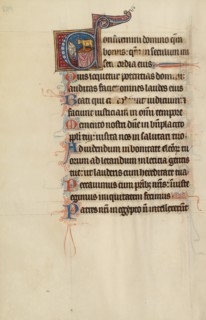 Confitemini domino qm
bonus: qm in seculum mi
sericordia eius
Quis loquetur potentias domini:
auditas faciet omnes laudes eius
Beati qui custodiunt iudicium: et
faciunt iusticiam in omni tempore
Memento nostri dne in bnplacito
ppli tui: uisita nos in salutari tuo
Ad uidendum in bonitate electorum tu
orum ad letandum in leticia gentis
tue: ut lauderis cum hereditate tua
Peccauimus cum patribus nris: iniuste
egimus iniquitatem fecimus
Patres nri in egypto n intellexerunt